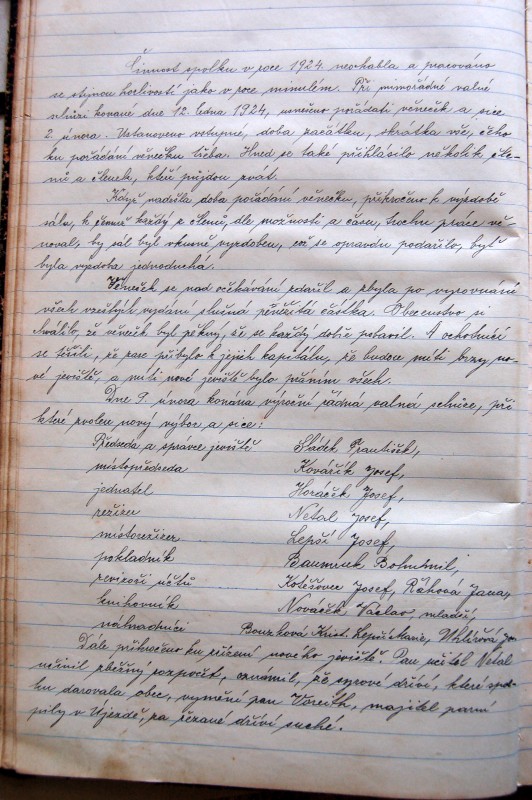 Činnost spolku v roce 1924 neochabla a pracováno
se stejnou horlivostí jako v roce minulém. Při mimořádné valné
schůzi konané dne 12. ledna 1924, usneseno pořádati věneček a sice
2. února. Ustanoveno vstupné, doba začátku, zkrátka vše, čeho
ku pořádání věnečku třeba. Hned se také přihlásilo několik čle-
nů a členek, kteří půjdou zvát.
Když nadešla doba pořádání věnečku, přikročeno k výzdobě
sálu, k čemuž každý z členů, dle možnosti a času, trochu práce vě-
noval, by sál byl vkusně vyzdoben, což se opravdu podařilo, byť
byla výzdoba jednoduchá.
Věneček se nad očekávání zdařil a zbyla po vyrovnání
všech vzešlých vydání slušná peněžitá částka. Obecenstvo si
chválilo, že věneček byl pěkný, že se každý dobře pobavil. A ochotníci
se těšili, že zase přibylo k jejich kapitálu, že budou míti brzy no-
vé jeviště, a míti nové jeviště bylo přáním všech.
Dne 9. února konána výroční řádná valná schůze, při
které zvolen nový výbor a sice:
Předseda a správce jeviště Sládek František,
místopředseda Kovářík Josef,
jednatel Horáček Josef,
režisér Netal Josef,
místorežisér Lepší Josef,
pokladník Baumruk Bohumil,
revizoři účtů Kotěšovec Josef, Říhová Jana,
knihovník Nováček Václav mladší,
náhradníci Bouzková Krist. Lepší Marie, Uhlířová Jo.
Dále přikročeno ku zřízení nového jeviště. Pan učitel Netal
učinil zběžný rozpočet, oznámil, že syrové dříví, které spol-
ku darovala obec, vymění pan Voreith, majitel parní
pily v Újezdě, za řezané dříví suché.